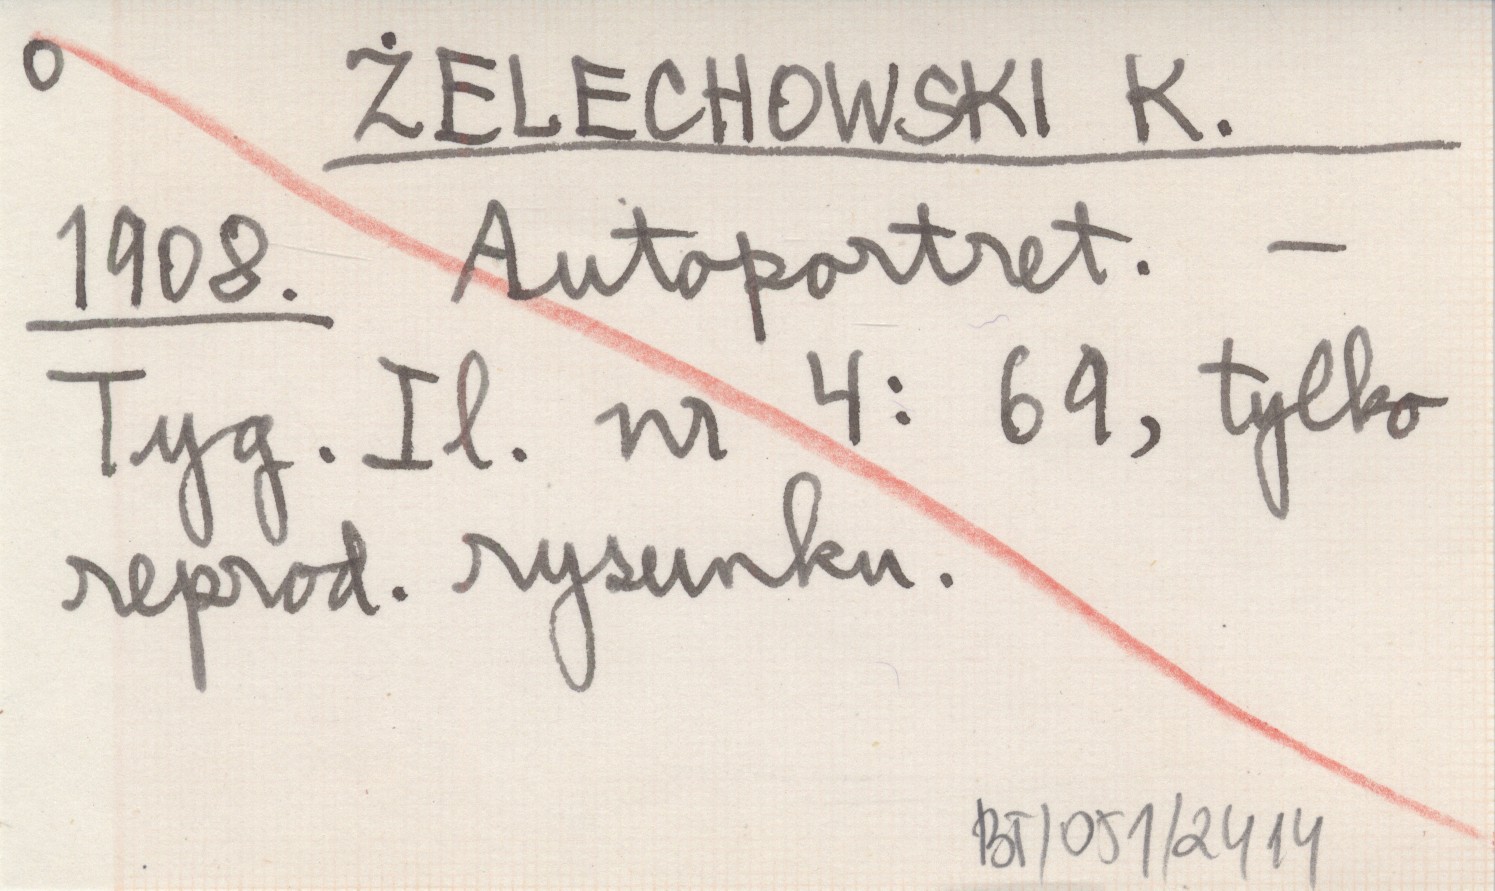 o ŻELECHOWSKI K.
1908. Autoportret. —
Tyg. Il. nr 4: 69, tylko
reprod. rysunku.
BT/051/2414